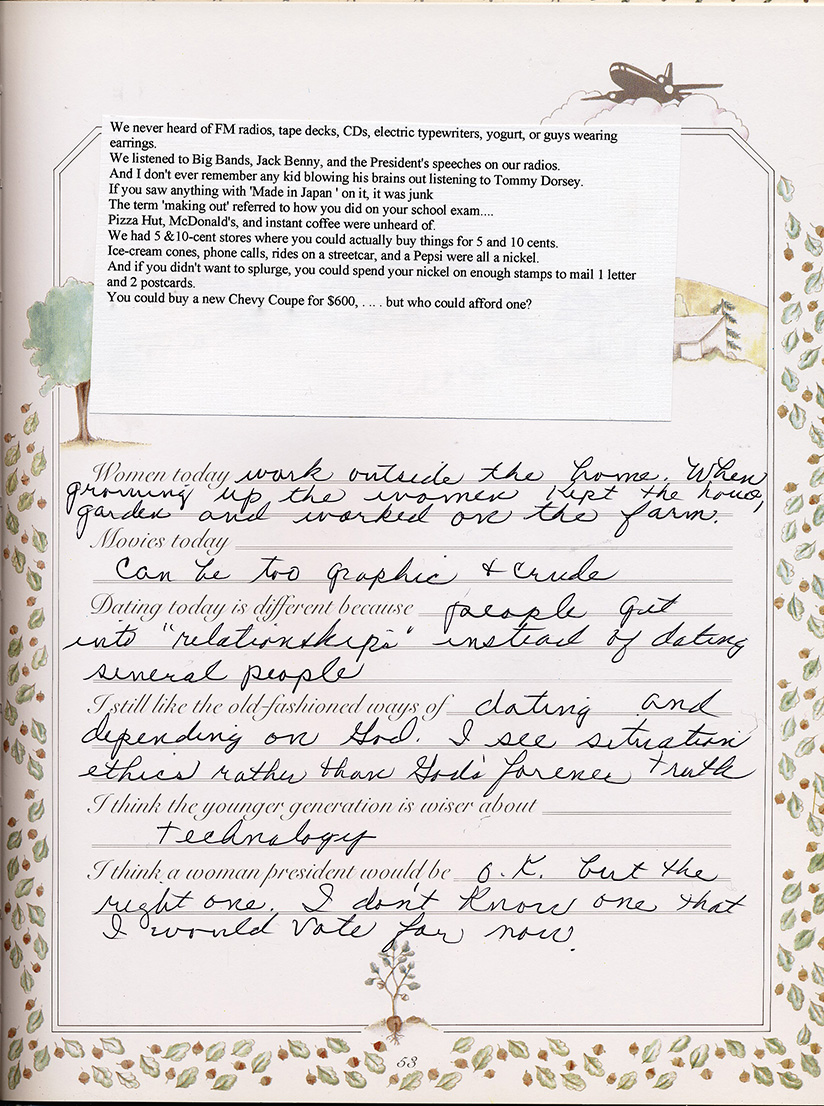 We never heard of FM radios, tape decks, CDs, electric typewriters, yogurt, or guys wearing
earrings.
We listened to Big Bands, Jack Benny, and the President's speeches on our radios.
And I don't ever remember any kid blowing his brains out listening to Tommy Dorsey.
If you saw anything with 'Made in Japan ' on it, it was junk
The term 'making out' referred to how you did on your school exam....
Pizza Hut, McDonald's, and instant coffee were unheard of.
We had 5 &10-cent stores where you could actually buy things for 5 and 10 cents.
Ice-cream cones, phone calls, rides on a streetcar, and a Pepsi were all a nickel.
And if you didn't want to splurge, you could spend your nickel on enough stamps to mail 1 letter
and 2 postcards.
You could buy a new Chevy Coupe for $600, . .. . but who could afford one?
Women today work outside the home. When
growing up the women kept the house,
garden and worked on the farm.
Movies today
can be too graphic & crude
Dating today is different because people get
into "relationships" instead of dating
several people
I still like the old-fashioned ways of dating and
depending on God. I see situation
ethics rather than God's forever truth
I think the younger generation is wiser about
technology
I think a woman president would be o.K. but the
right one. I don't know one that
I would vote for now.
53